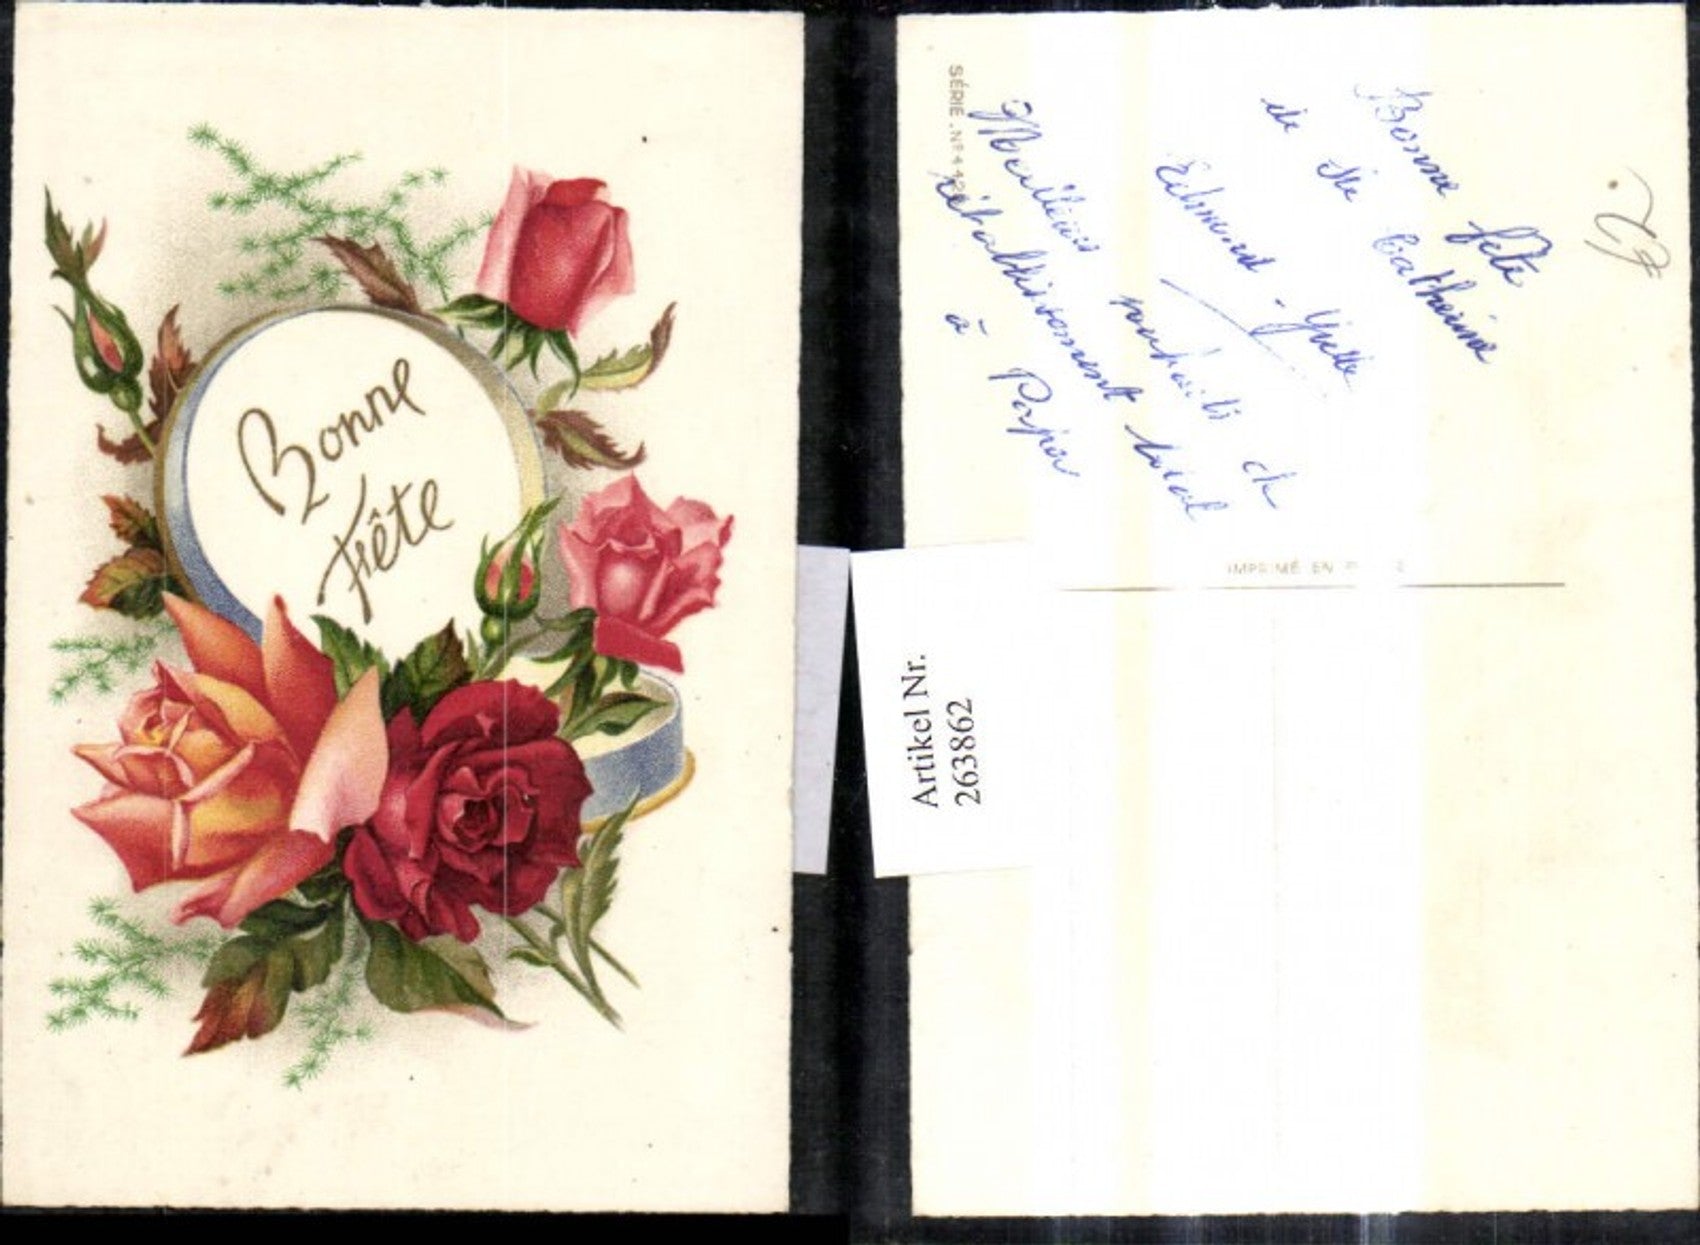 Bonne
Fête
SÉRIE - N° 4
Bonne fête
de Ste Catherine
Edmond - Yvette
Meilleurs souhaits de
rétablissement total
à Papa
IMPRIMÉ EN
Artikel Nr.
2638862